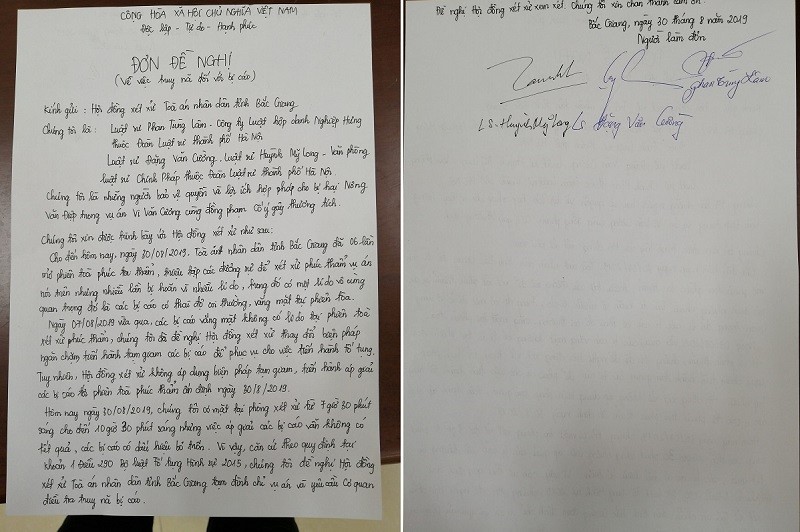 CỘNG HÒA XÃ HỘI CHỦ NGHĨA VIỆT NAM
Độc lập - Tự do - Hạnh phúc
ĐƠN ĐỀ NGHỊ
(Về việc truy nã đối với bị cáo)
Kính gửi: Hội đồng xét xử Toà án nhân dân tỉnh Bắc Giang
Chúng tôi là: Luật sư Phan Tùng Lâm - Công ty Luật hợp danh Nghiệp Hưng
thuộc Đoàn Luật sư thành phố Hà Nội
Luật sư Đặng Văn Cường, Luật sư Huỳnh Mỹ Long - Văn phòng
luật sư Chính Pháp thuộc Đoàn Luật sư thành phố Hà Nội
Chúng tôi là những người bảo vệ quyền và lợi ích hợp pháp cho bị hại Nông
Văn Điệp trong vụ án Vi Văn Cường cùng đồng phạm Cố ý gây thương tích.
Chúng tôi xin được trình bày với Hội đồng xét xử như sau:
Cho đến hôm nay, ngày 30/08/2019. Toà án nhân dân tỉnh Bắc Giang đã 06 lần
mở phiên toà phúc thẩm, triệu tập các đương sự để xét xử phúc thẩm vụ án
nói trên nhưng nhiều lần bị hoãn vì nhiều lí do, trong đó có một lí do vô cùng
quan trọng đó là các bị cáo có thái độ coi thường, vắng mặt tại phiên tòa.
Ngày 07/08/2019 vừa qua, các bị cáo vắng mặt không có lí do tại phiên toà
xét xử phúc thẩm, chúng tôi đã đề nghị Hội đồng xét xử thay đổi biện pháp
ngăn chặn tiến hành tạm giam các bị cáo để phục vụ cho việc tiến hành tố tụng.
Tuy nhiên, Hội đồng xét xử không áp dụng biện pháp tạm giam, tiến hành áp giải
các bị cáo tới phiên toà phúc thẩm ấn định ngày 30/8/2019.
Hôm nay ngày 30/08/2019, chúng tôi có mặt tại phòng xét xử từ 7 giờ 30 phút
sáng cho đến 10 giờ 30 phút sáng nhưng việc áp giải các bị cáo vẫn không có
kết quả, các bị cáo có dấu hiệu bỏ trốn. Vì vậy, căn cứ theo quy định tại
khoản 1 Điều 290 Bộ luật Tố tụng Hình sự 2015, chúng tôi đề nghị Hội đồng
xét xử Toà án nhân dân tỉnh Bắc Giang tạm đình chỉ vụ án và yêu cầu Cơ quan
điều tra truy nã bị cáo.
Đề nghị Hội đồng xét xử xem xét. Chúng tôi xin chân thành cảm ơn.
Bắc Giang, ngày 30 tháng 8 năm 2019
Người làm đơn
Phan Tùng Lâm
LS. Huỳnh Mỹ Long Ls Đặng Văn Cường